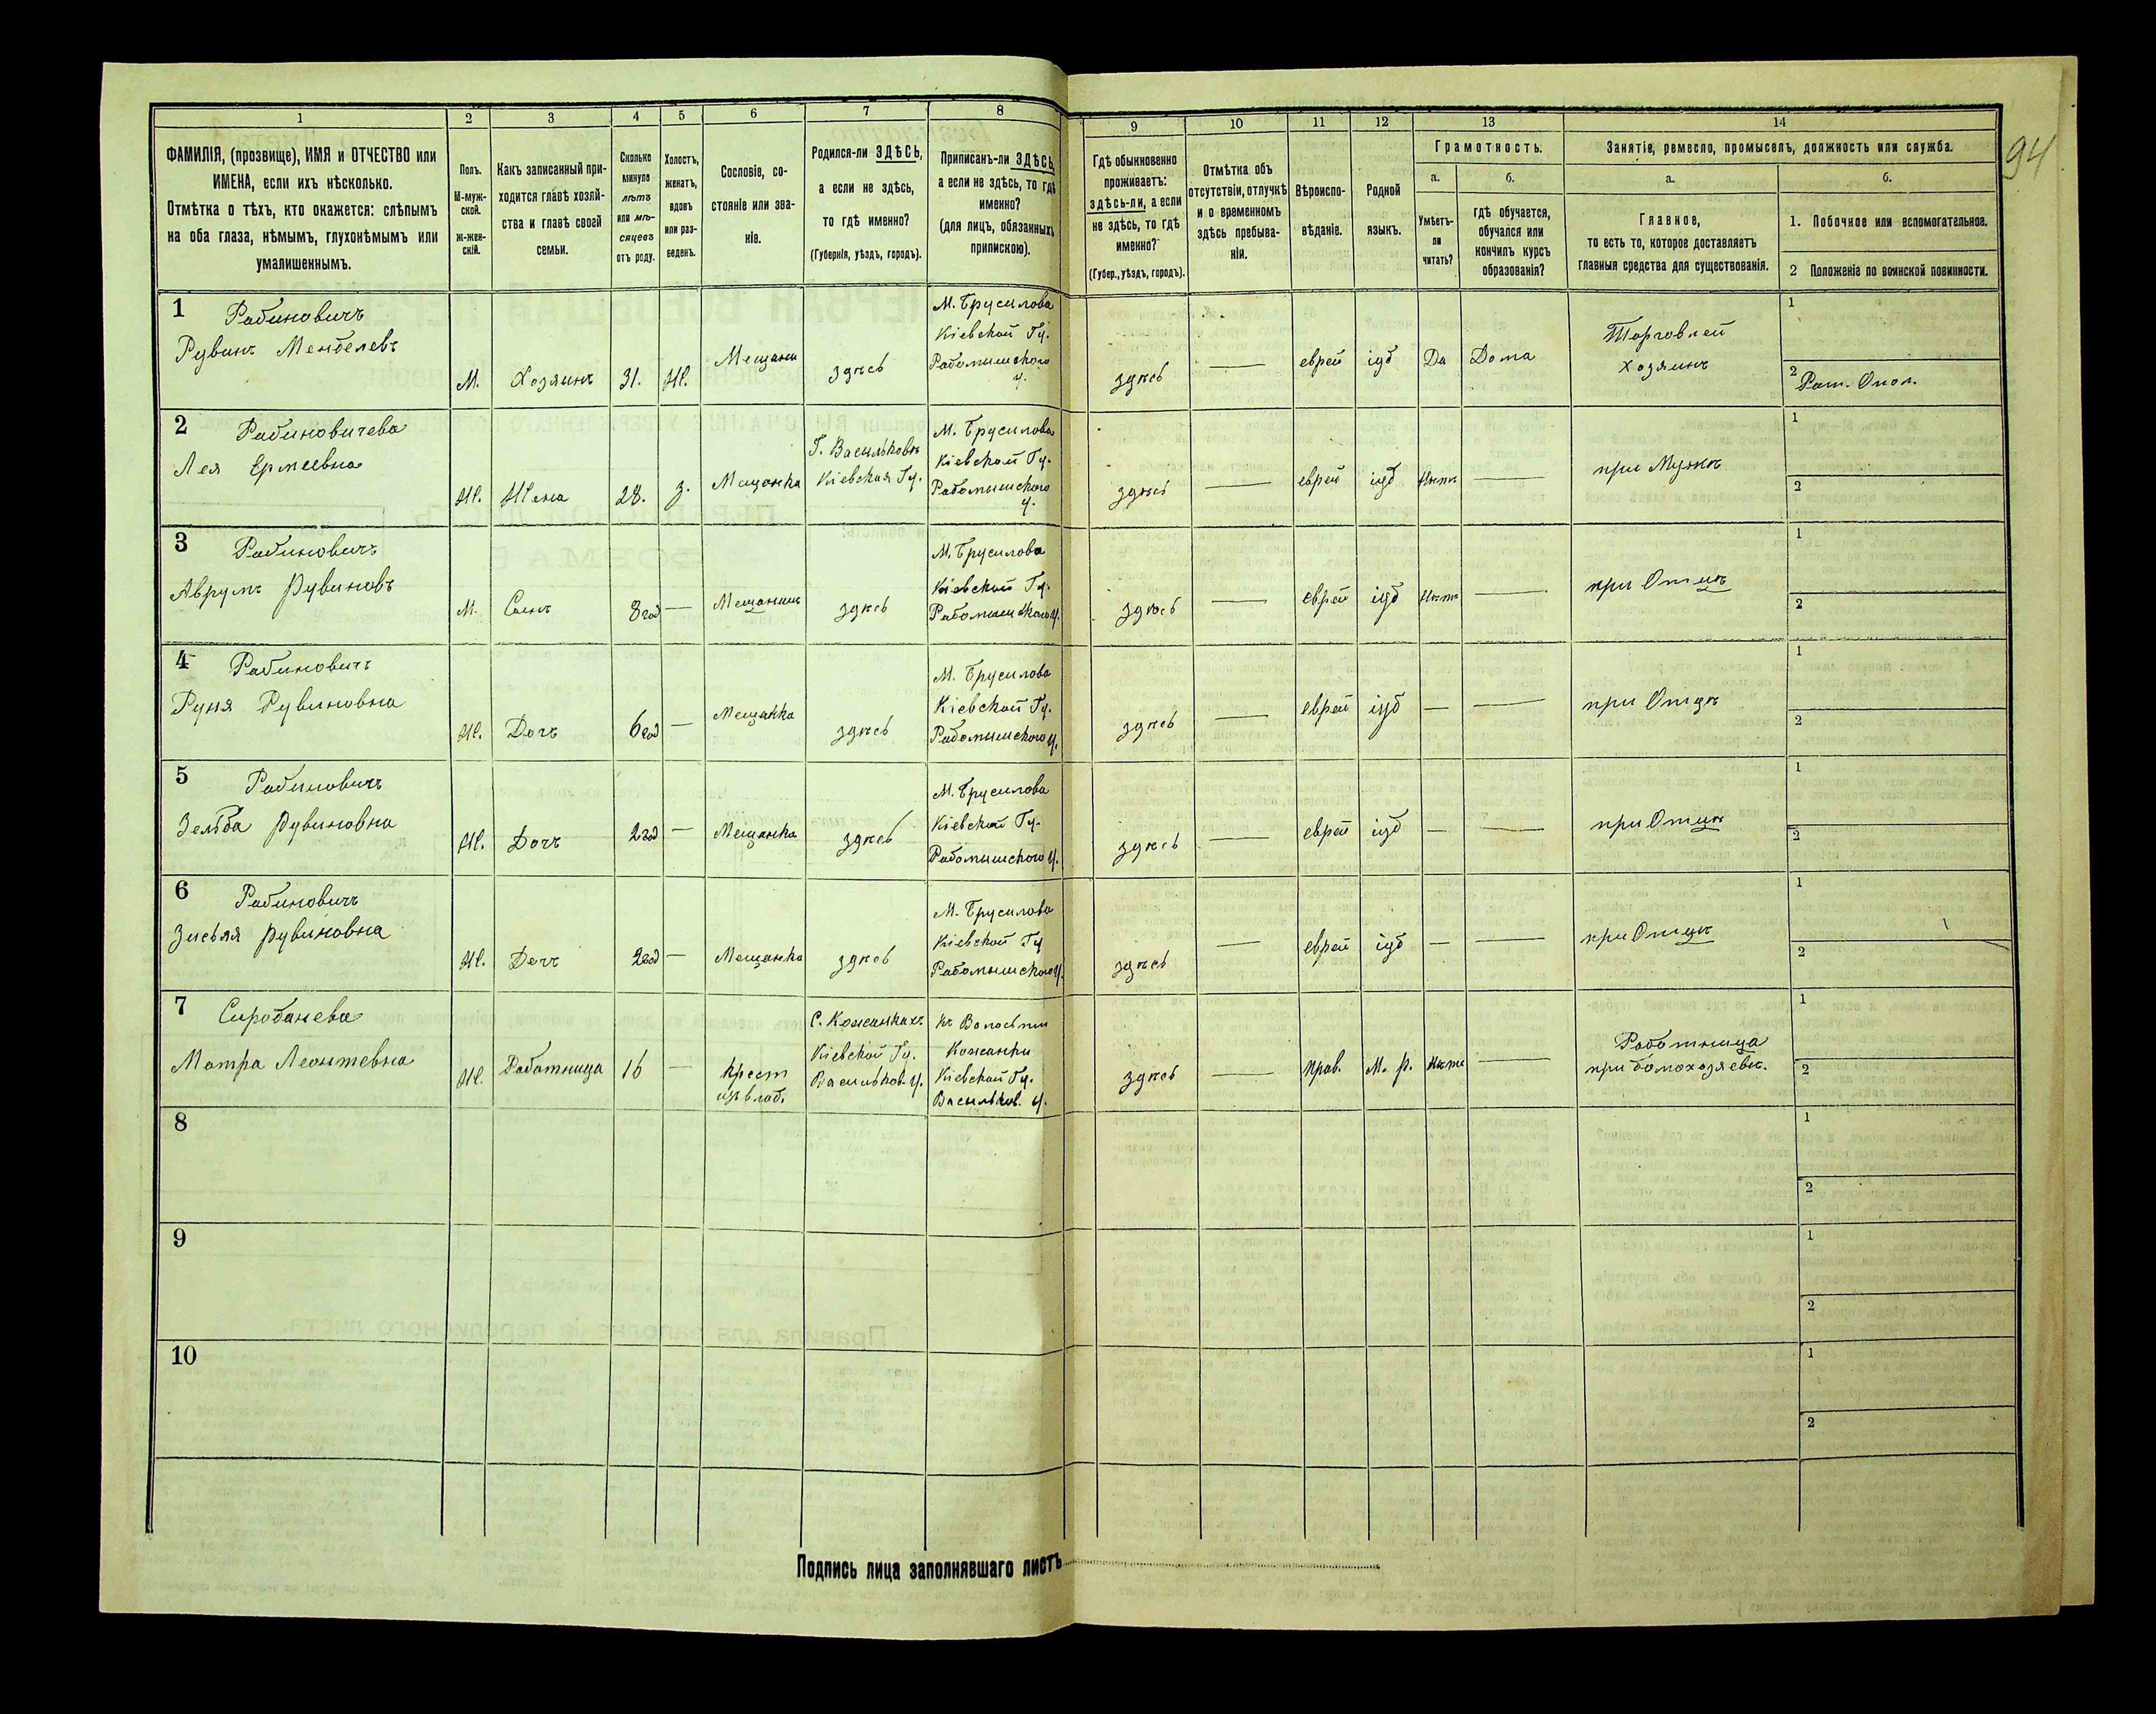 94
1 2 3 4 5 6 7 8 9 10 11 12 13 14
ФАМИЛІЯ, (прозвище), ИМЯ и ОТЧЕСТВО или
ИМЕНА, если ихъ нѣсколько.
Отмѣтка о тѣхъ, кто окажется: слѣпымъ
на оба глаза, нѣмымъ, глухонѣмымъ или
умалишеннымъ.
Полъ.
М-муж-
ской.
Ж-жен-
скій.
Какъ записанный при-
ходится главѣ хозяй-
ства и главѣ своей
семьи.
Сколько
минуло
лѣтъ
или мѣ-
сяцевъ
отъ роду.
Холостъ,
женатъ,
вдовъ
или раз-
веденъ.
Сословіе, со-
стояніе или зва-
ніе.
Родился-ли ЗДѢСЬ,
а если не здѣсь,
то гдѣ именно?
(Губернія, уѣздъ, городъ).
Приписанъ-ли ЗДѢСЬ,
а если не здѣсь, то гдѣ
именно?
(для лицъ, обязанныхъ
припискою).
Гдѣ обыкновенно
проживаетъ:
здѣсь-ли, а если
не здѣсь, то гдѣ
именно?
(Губер., уѣздъ, городъ).
Отмѣтка объ
отсутствіи, отлучкѣ
и о временномъ
здѣсь пребыва-
ніи.
Вѣроиспо-
вѣданіе.
Родной
языкъ.
Грамотность.
а.
Умѣетъ-
ли
читать?
б.
гдѣ обучается,
обучался или
кончилъ курсъ
образованія?
Занятіе, ремесло, промыселъ, должность или служба.
а.
Главное,
то есть то, которое доставляетъ
главныя средства для существованія.
б.
1. Побочное или вспомогательное.
2 Положеніе по воинской повинности.
1 Рабиновичъ
Рувинъ Менделевъ
М.
Хозяинъ
31.
Ж.
Мещани
здѣсь
М. Брусилова
Кіевской Гу.
Радомышского
у.
здѣсь
—
еврей
іуд
Да
Дома
Торговлей
хозяинъ
1
2 Рат. Опол.
2 Рабиновичева
Лея
Ж.
Жена
28.
З.
Мещанка
Г. Васильковъ
Кіевская Гу.
М. Брусилова
Кіевской Гу.
Радомышского
у.
здѣсь
—
еврей
іуд
Нѣтъ
—
при Мужѣ
1
2
3 Рабиновичъ
Аврумъ Рувиновъ
М.
Сынъ
8 год
—
Мещанинъ
здѣсь
М. Брусилова
Кіевской Гу.
Радомышского у.
здѣсь
—
еврей
іуд
Нѣтъ
—
при Отцѣ
1
2
4 Рабиновичъ
Руня Рувиновна
Ж.
Дочъ
6 год
—
Мещанка
здѣсь
М. Брусилова
Кіевской Гу.
Радомышского у.
здѣсь
—
еврей
іуд
—
—
при Отцѣ
1
2
5 Рабиновичъ
Зелда Рувиновна
Ж.
Дочъ
2 год
—
Мещанка
здѣсь
М. Брусилова
Кіевской Гу.
Радомышского у.
здѣсь
—
еврей
іуд
—
—
при Отцѣ
1
2
6 Рабиновичъ
Рувиновна
Ж.
Дочъ
2 год
—
Мещанка
здѣсь
М. Брусилова
Кіевской Гу
Радомышского у.
здѣсь
—
еврей
іуд
—
—
при Отцѣ
1
2
7
Мотра Леонтевна
Ж.
Работница
16
—
крест
изъ влад.
С. Кожанкахъ
Кіевской Гу.
Васильков. у.
Къ Волости
Кожанки
Кіевской Гу.
Васильков. у.
здѣсь
—
Прав.
М. р.
Нѣтъ
—
Работница
при домохозяевѣ.
1
2
8
1
2
9
1
2
10
1
2
Подпись лица заполнявшаго листъ